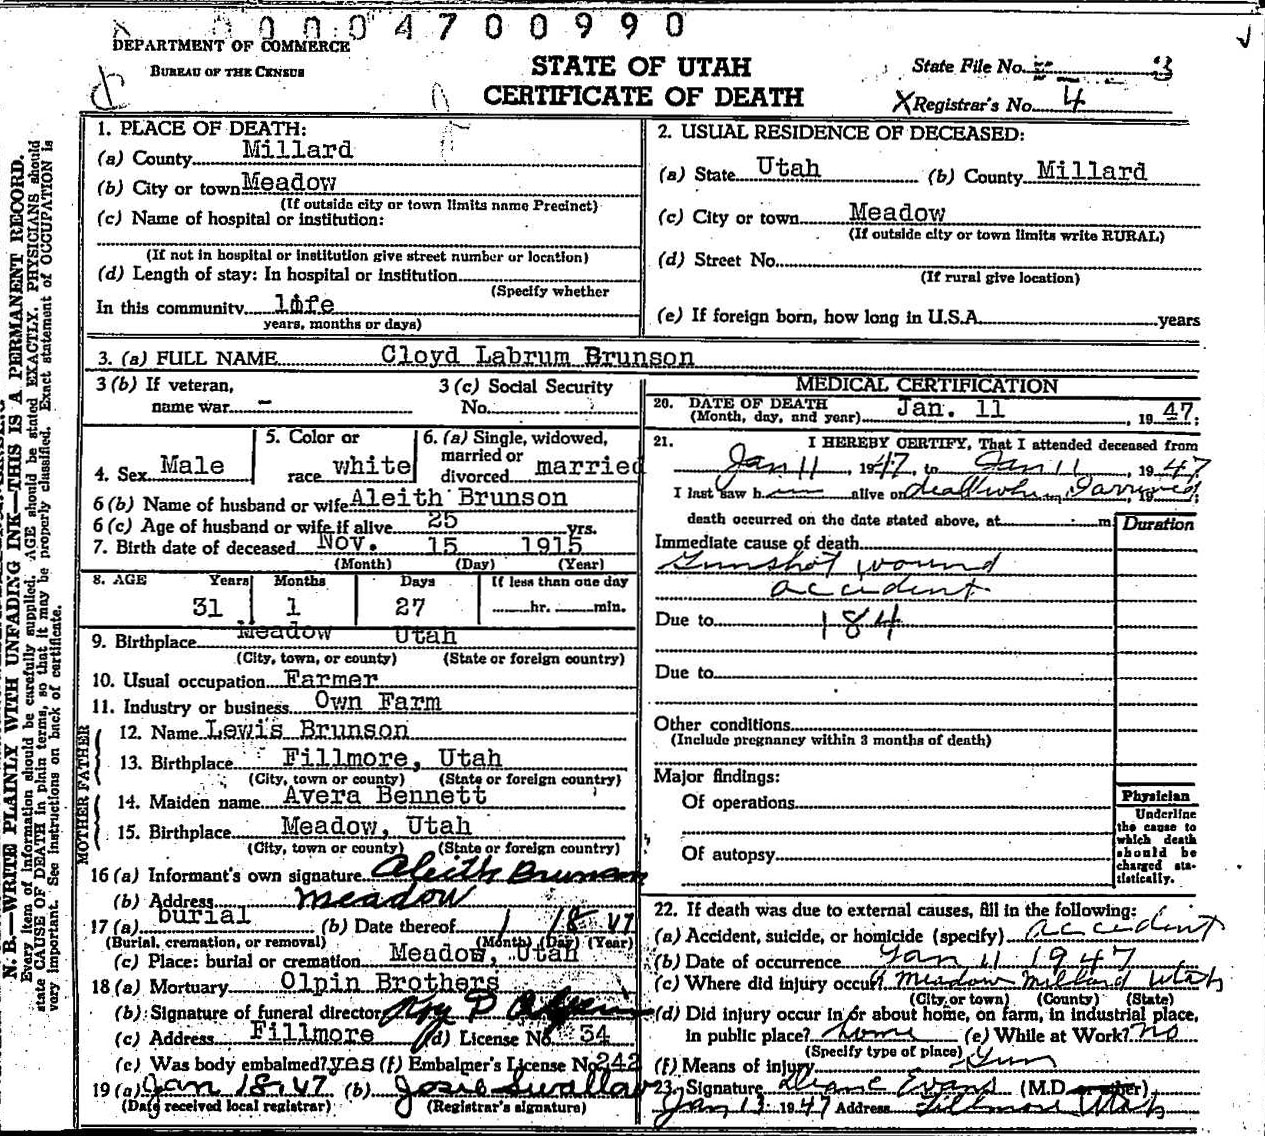 00004700990
DEPARTMENT OF COMMERCE
BUREAU OF THE CENSUS
STATE OF UTAH
CERTIFICATE OF DEATH
State File No. 3
X Registrar's No. 4
N. B.—WRITE PLAINLY WITH UNFADING INK—THIS IS A PERMANENT RECORD.
Every item of information should be carefully supplied. AGE should be stated EXACTLY. PHYSICIANS should
state CAUSE OF DEATH in plain terms, so that it may be properly classified. Exact statement of OCCUPATION is
very important. See instructions on back of certificate.
1. PLACE OF DEATH:
(a) County Millard
(b) City or town Meadow
(If outside city or town limits name Precinct)
(c) Name of hospital or institution:
(If not in hospital or institution give street number or location)
(d) Length of stay: In hospital or institution
(Specify whether
In this community life
years, months or days)
2. USUAL RESIDENCE OF DECEASED:
(a) State Utah (b) County Millard
(c) City or town Meadow
(If outside city or town limits write RURAL)
(d) Street No.
(If rural give location)
(e) If foreign born, how long in U.S.A. years
3. (a) FULL NAME Cloyd Labrum Brunson
3 (b) If veteran, name war -
3 (c) Social Security No.
4. Sex Male
5. Color or race white
6. (a) Single, widowed, married or divorced married
6 (b) Name of husband or wife Aleith Brunson
6 (c) Age of husband or wife if alive 25 yrs.
7. Birth date of deceased Nov. 15 1915
(Month) (Day) (Year)
8. AGE Years Months Days If less than one day
31 1 27 hr. min.
9. Birthplace Meadow Utah
(City, town, or county) (State or foreign country)
10. Usual occupation Farmer
11. Industry or business Own Farm
FATHER
12. Name Lewis Brunson
13. Birthplace Fillmore, Utah
(City, town or county) (State or foreign country)
MOTHER
14. Maiden name Avera Bennett
15. Birthplace Meadow, Utah
(City, town or county) (State or foreign country)
16 (a) Informant's own signature Aleith Brunson
(b) Address meadow
17 (a) burial (b) Date thereof 1 18 47
(Burial, cremation, or removal) (Month) (Day) (Year)
(c) Place: burial or cremation Meadow, Utah
18 (a) Mortuary Olpin Brothers
(b) Signature of funeral director
(c) Address Fillmore (d) License No. 34
(e) Was body embalmed? yes (f) Embalmer's License No. 242
19 (a) Jan 18, 47 (b) Josie Swallow
(Date received local registrar) (Registrar's signature)
MEDICAL CERTIFICATION
20. DATE OF DEATH
(Month, day, and year) Jan. 11, 1947.
21. I HEREBY CERTIFY, That I attended deceased from
Jan 11, 1947, to Jan 11, 1947
I last saw h alive on dead when I arrived, 19
death occurred on the date stated above, at m
Duration
Immediate cause of death
Gunshot wound
accident
Due to 184
Due to
Other conditions
(Include pregnancy within 3 months of death)
Major findings:
Of operations
Of autopsy
Physician
Underline the cause to which death should be charged statistically.
22. If death was due to external causes, fill in the following:
(a) Accident, suicide, or homicide (specify) accident
(b) Date of occurrence Jan 11 1947
(c) Where did injury occur? Meadow Millard Utah
(City or town) (County) (State)
(d) Did injury occur in or about home, on farm, in industrial place,
in public place? home (e) While at Work? no
(Specify type of place)
(f) Means of injury Gun
23. Signature Deane Evans (M.D. or other)
Jan 13 1947 Address Fillmore Utah